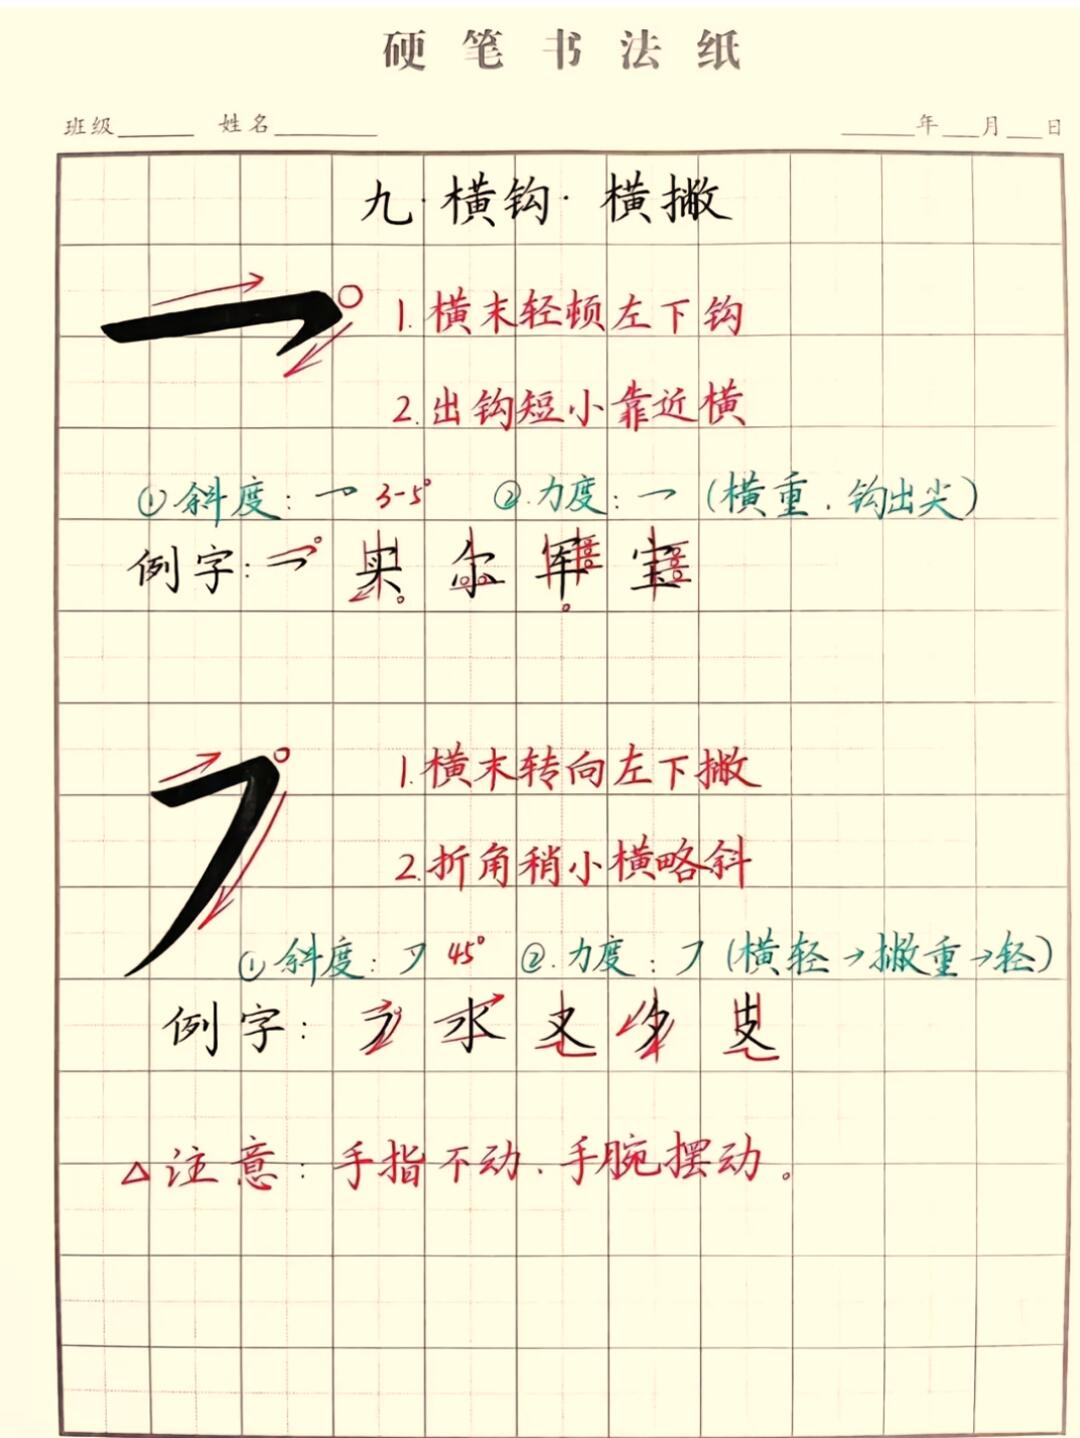 硬笔书法纸
班级 姓名 年 月 日
九·横钩·横撇
1.横末轻顿左下钩
2.出钩短小靠近横
①斜度：乛 3-5° ②力度：乛（横重．钩出尖）
例字：乛 买 尔 军 宝
1.横末转向左下撇
2.折角稍小横略斜
①斜度：㇇ 45° ②.力度：㇇（横轻→撇重→轻）
例字：㇇ 水 又 夕 支
△注意：手指不动．手腕摆动。